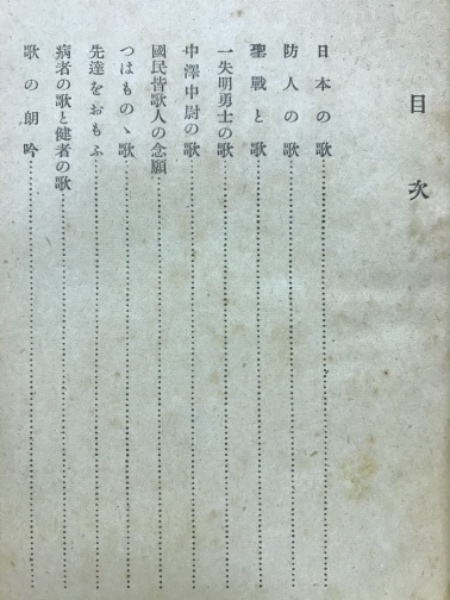 目次
日本の歌
防人の歌
聖戰と歌
一失明勇士の歌
中澤中尉の歌
國民皆歌人の念願
つはものゝ歌
先達をおもふ
病者の歌と健者の歌
歌の朗吟